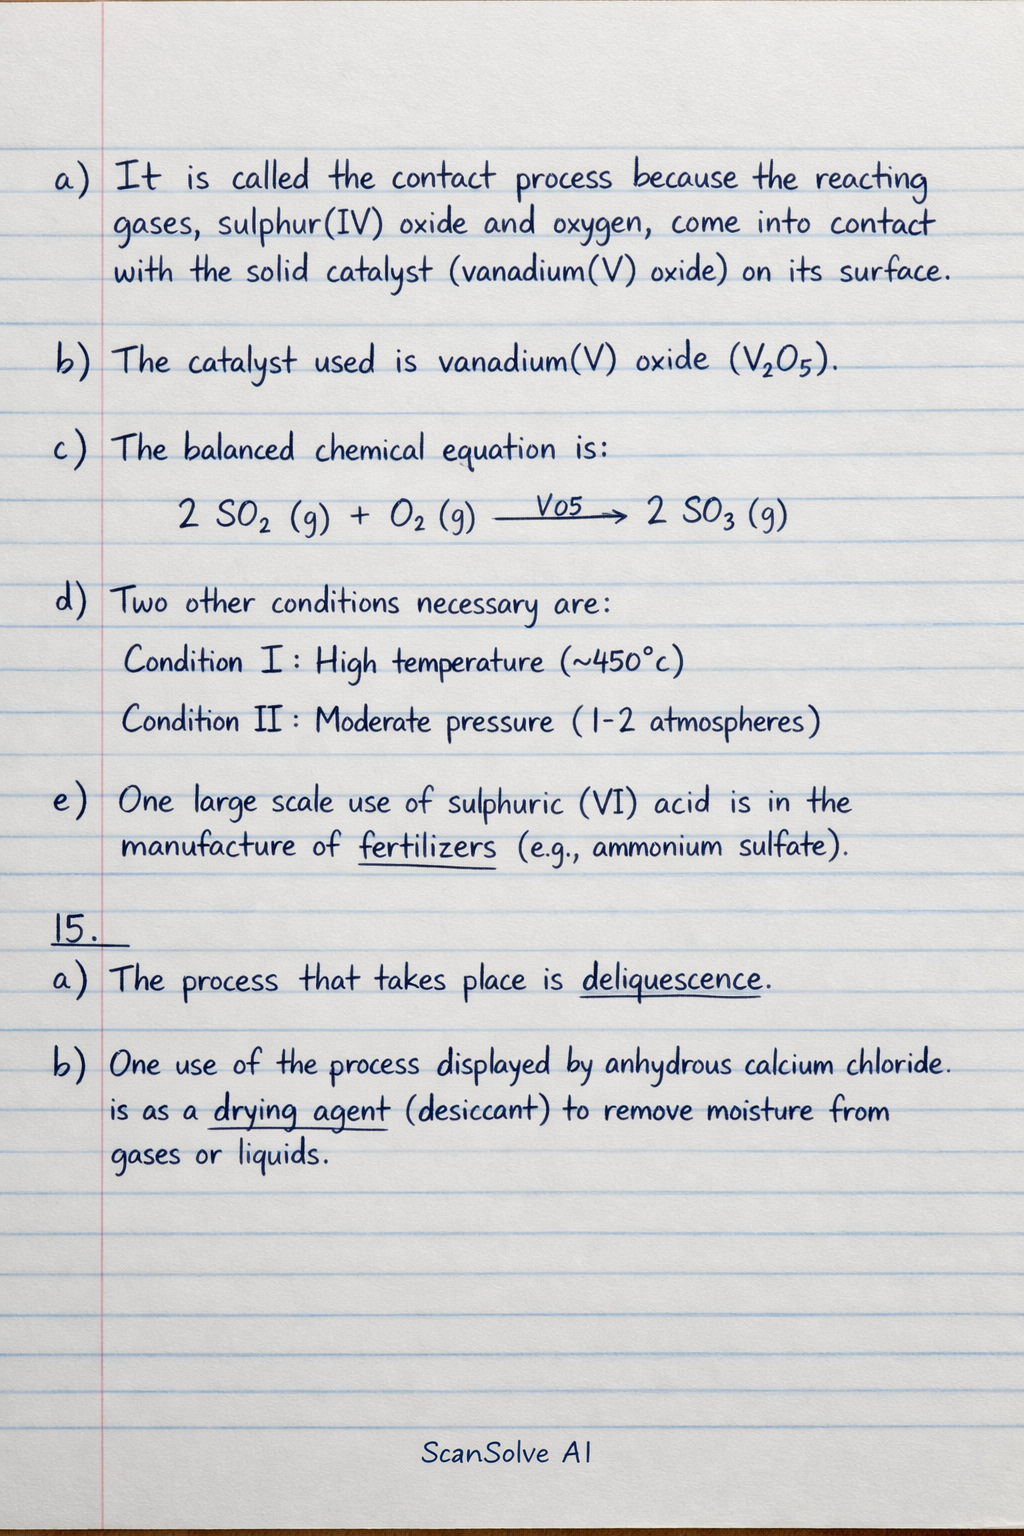 a) It is called the contact process because the reacting
gases, sulphur(IV) oxide and oxygen, come into contact
with the solid catalyst (vanadium(V) oxide) on its surface.
b) The catalyst used is vanadium(V) oxide (V₂O₅).
c) The balanced chemical equation is:
2 SO₂ (g) + O₂ (g) —VO5→ 2 SO₃ (g)
d) Two other conditions necessary are:
Condition I : High temperature (~450°c)
Condition II : Moderate pressure (1-2 atmospheres)
e) One large scale use of sulphuric (VI) acid is in the
manufacture of fertilizers (e.g., ammonium sulfate).
15.
a) The process that takes place is deliquescence.
b) One use of the process displayed by anhydrous calcium chloride.
is as a drying agent (desiccant) to remove moisture from
gases or liquids.
ScanSolve AI